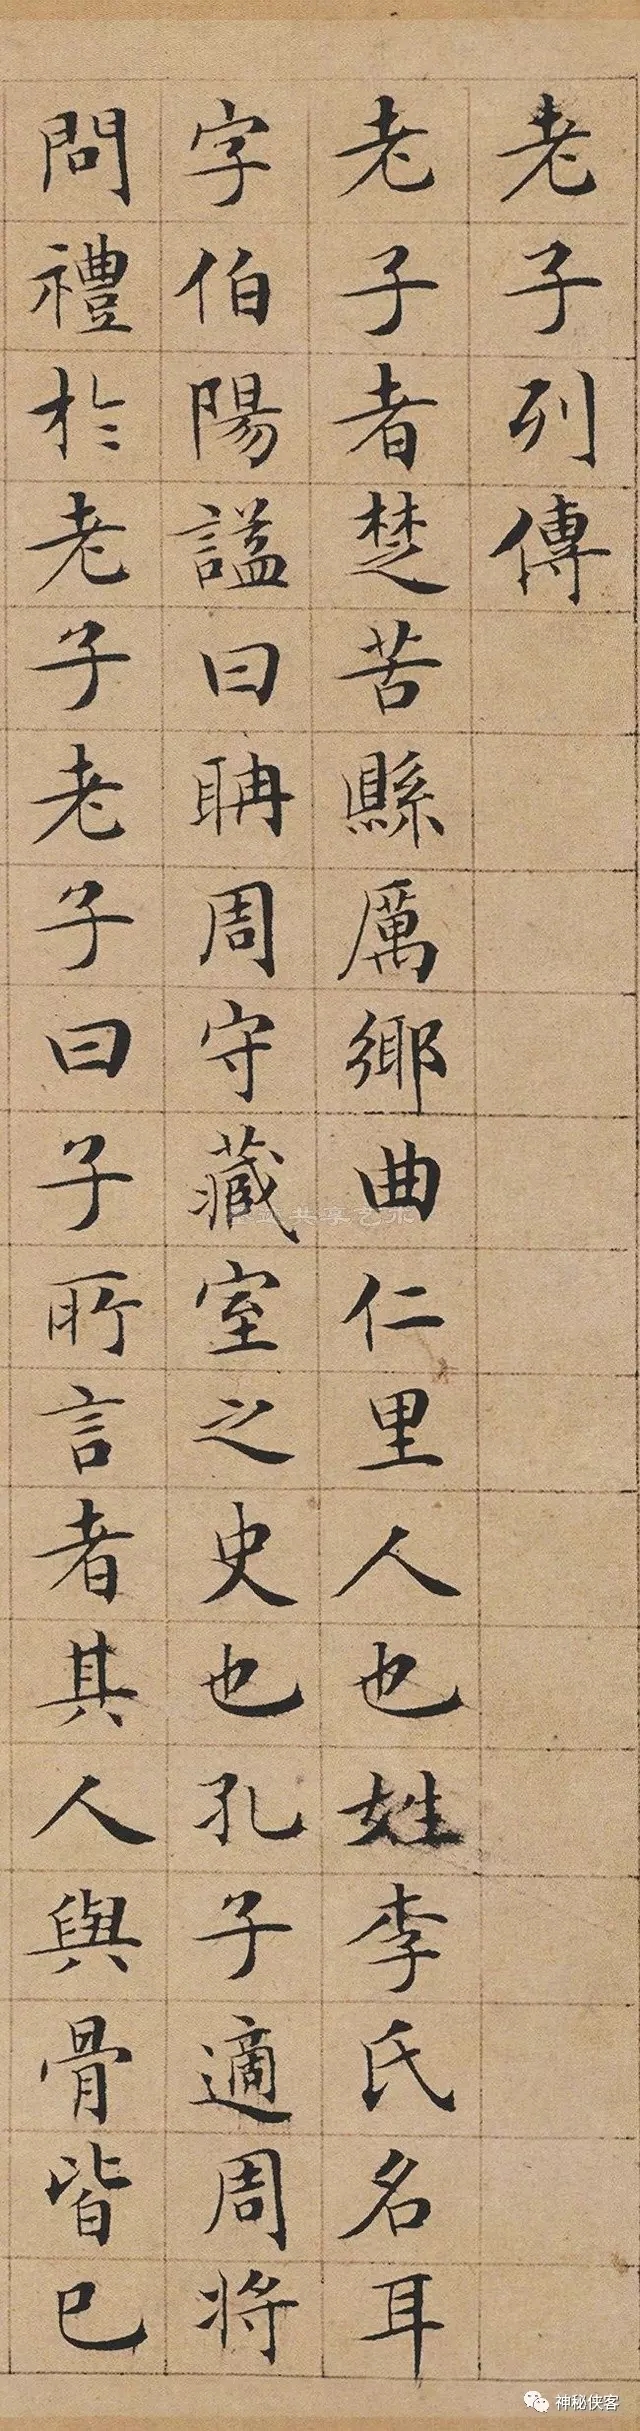 老子列傳
老子者楚苦縣厲鄉曲仁里人也姓李氏名耳
字伯陽謚曰聃周守藏室之史也孔子適周將
問禮於老子老子曰子所言者其人與骨皆已
神秘侠客